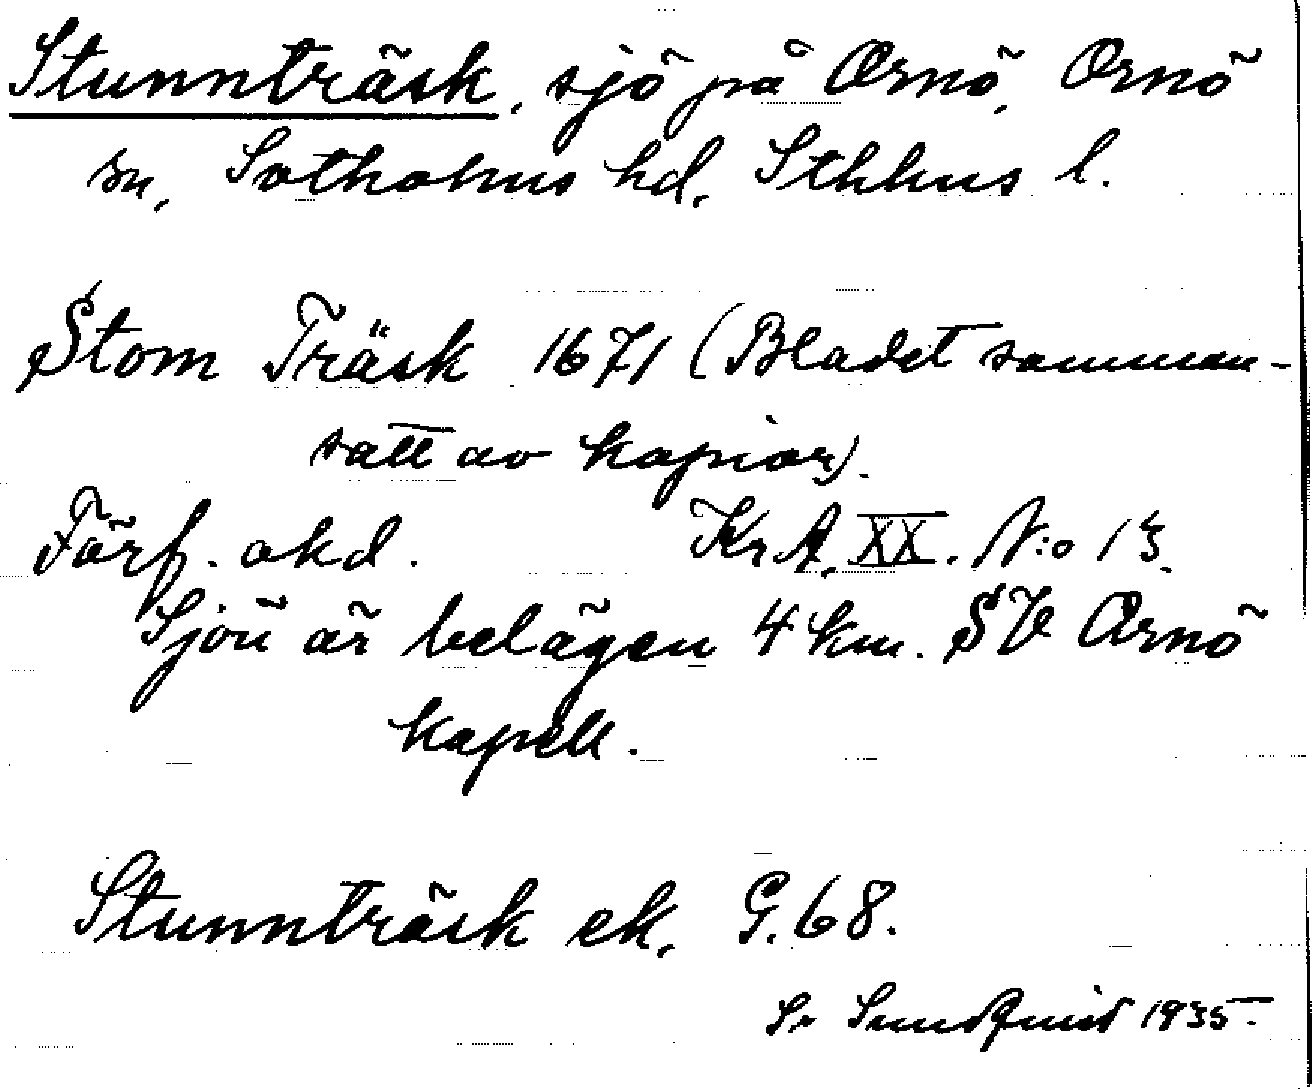 Stunnträsk, sjö på Ornö, Ornö
sn, Sotholms hd, Sthlms l.
Stom Träsk 1671 (Bladet samman-
satt av kopior).
Förf. okd. Kr.A. XX. N:o 13.
Sjön är belägen 4 km. SV Ornö
kapell.
Stunnträsk ek. G. 68.
Sundquist 1935.